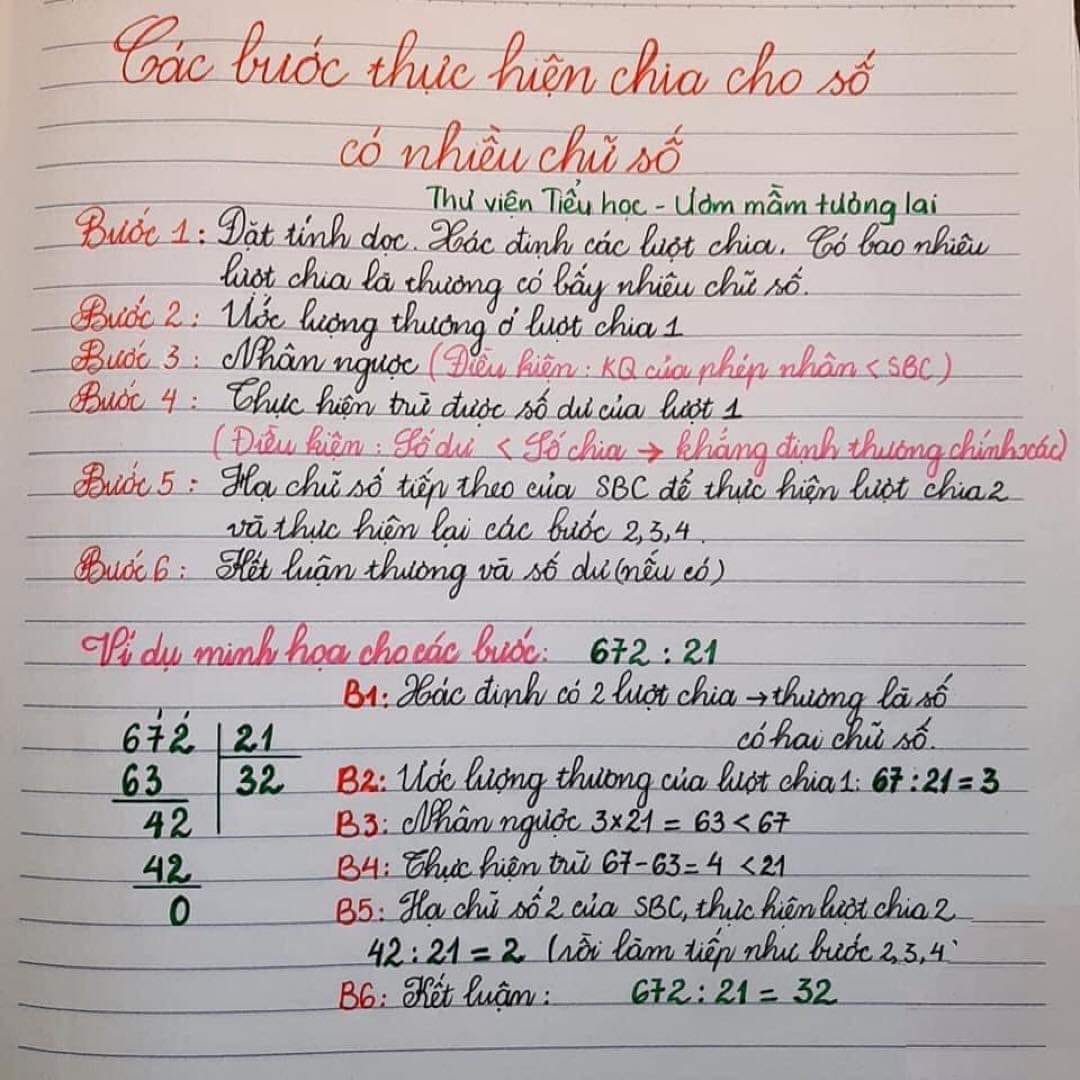 Các bước thực hiện chia cho số
có nhiều chữ số
Thư viện Tiểu học - Ươm mầm tương lai
Bước 1: Đặt tính dọc. Xác định các lượt chia. Có bao nhiêu
lượt chia là thương có bấy nhiêu chữ số.
Bước 2: Ước lượng thương ở lượt chia 1
Bước 3: Nhân ngược (Điều kiện: KQ của phép nhân < SBC)
Bước 4: Thực hiện trừ được số dư của lượt 1
(Điều kiện: Số dư < Số chia → khẳng định thương chính xác)
Bước 5: Hạ chữ số tiếp theo của SBC để thực hiện lượt chia 2
và thực hiện lại các bước 2,3,4.
Bước 6: Kết luận thương và số dư (nếu có)
Ví dụ minh họa cho các bước: 672 : 21
B1: Xác định có 2 lượt chia → thương là số
có hai chữ số.
672 21
63 32
42
42
0
B2: Ước lượng thương của lượt chia 1: 67 : 21 = 3
B3: Nhân ngược 3x21 = 63 < 67
B4: Thực hiện trừ 67-63 = 4 < 21
B5: Hạ chữ số 2 của SBC, thực hiện lượt chia 2
42 : 21 = 2 (rồi làm tiếp như bước 2,3,4
B6: Kết luận: 672 : 21 = 32